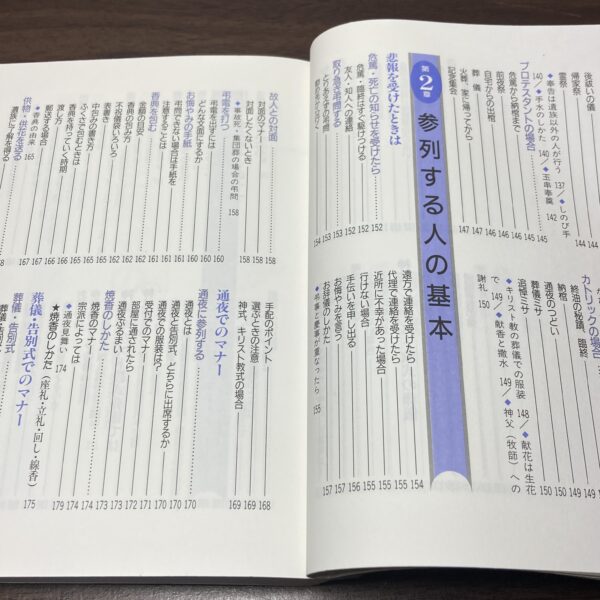 後祓いの儀
144
帰家祭
144
霊祭
144
◆奉告は遺族以外の人が行う 137／◆しのび手
140／◆手水のしかた 140／◆玉串奉奠 142
プロテスタントの場合
危篤から納棺まで
前夜祭
自宅からの出棺
葬儀
火葬、家に帰ってから
記念集会
カトリックの場合
終油の秘蹟、臨終
納棺
通夜のつどい
葬儀ミサ
追悼ミサ
◆キリスト教の葬儀での服装 148／◆献花は生花
で 149／◆献香と撒水 149／◆神父（牧師）への
謝礼 150
第2章 参列する人の基本
悲報を受けたときは
危篤・死亡の知らせを受けたら
危篤・臨終はすぐ駆けつける
友人・知人への連絡
取り急ぎ弔問する
とりあえずの弔問
遠方で連絡を受けたら
154
代理で連絡を受けたら
155
近所に不幸があった場合
155
行けない場合
155
手伝いを申し出る
156
お悔やみを言う
156
お辞儀のしかた
157
◆弔事と慶事が重なったら 155
故人との対面
対面のマナー
158
対面したくないとき
158
◆事故死・集団葬の場合の弔問 158
弔電を打つ
弔電を出すには
160
どんな文面にするか
160
お悔やみの手紙
弔問できない場合は手紙を
注意することは
香典を包む
金額の目安
香典の包み方
不祝儀袋いろいろ
表書き
中包みの書き方
ふくさで包むときは
香典を持っていく時期
渡し方
郵送する場合
◆香典の由来 165
供物・供花を送る
遺族に了解を得る
手配のポイント
168
選ぶときの注意
169
神式、キリスト教式の場合
169
通夜でのマナー
通夜に参列する
通夜とは
170
通夜と告別式、どちらに出席するか
170
通夜での服装は?
受付でのマナー
部屋に通されたら
通夜ぶるまい
焼香のしかた
焼香のマナー
宗派によっては
◆通夜見舞い 174
★焼香のしかた（座礼・立礼・回し・線香） 175
葬儀・告別式でのマナー
葬儀・告別式